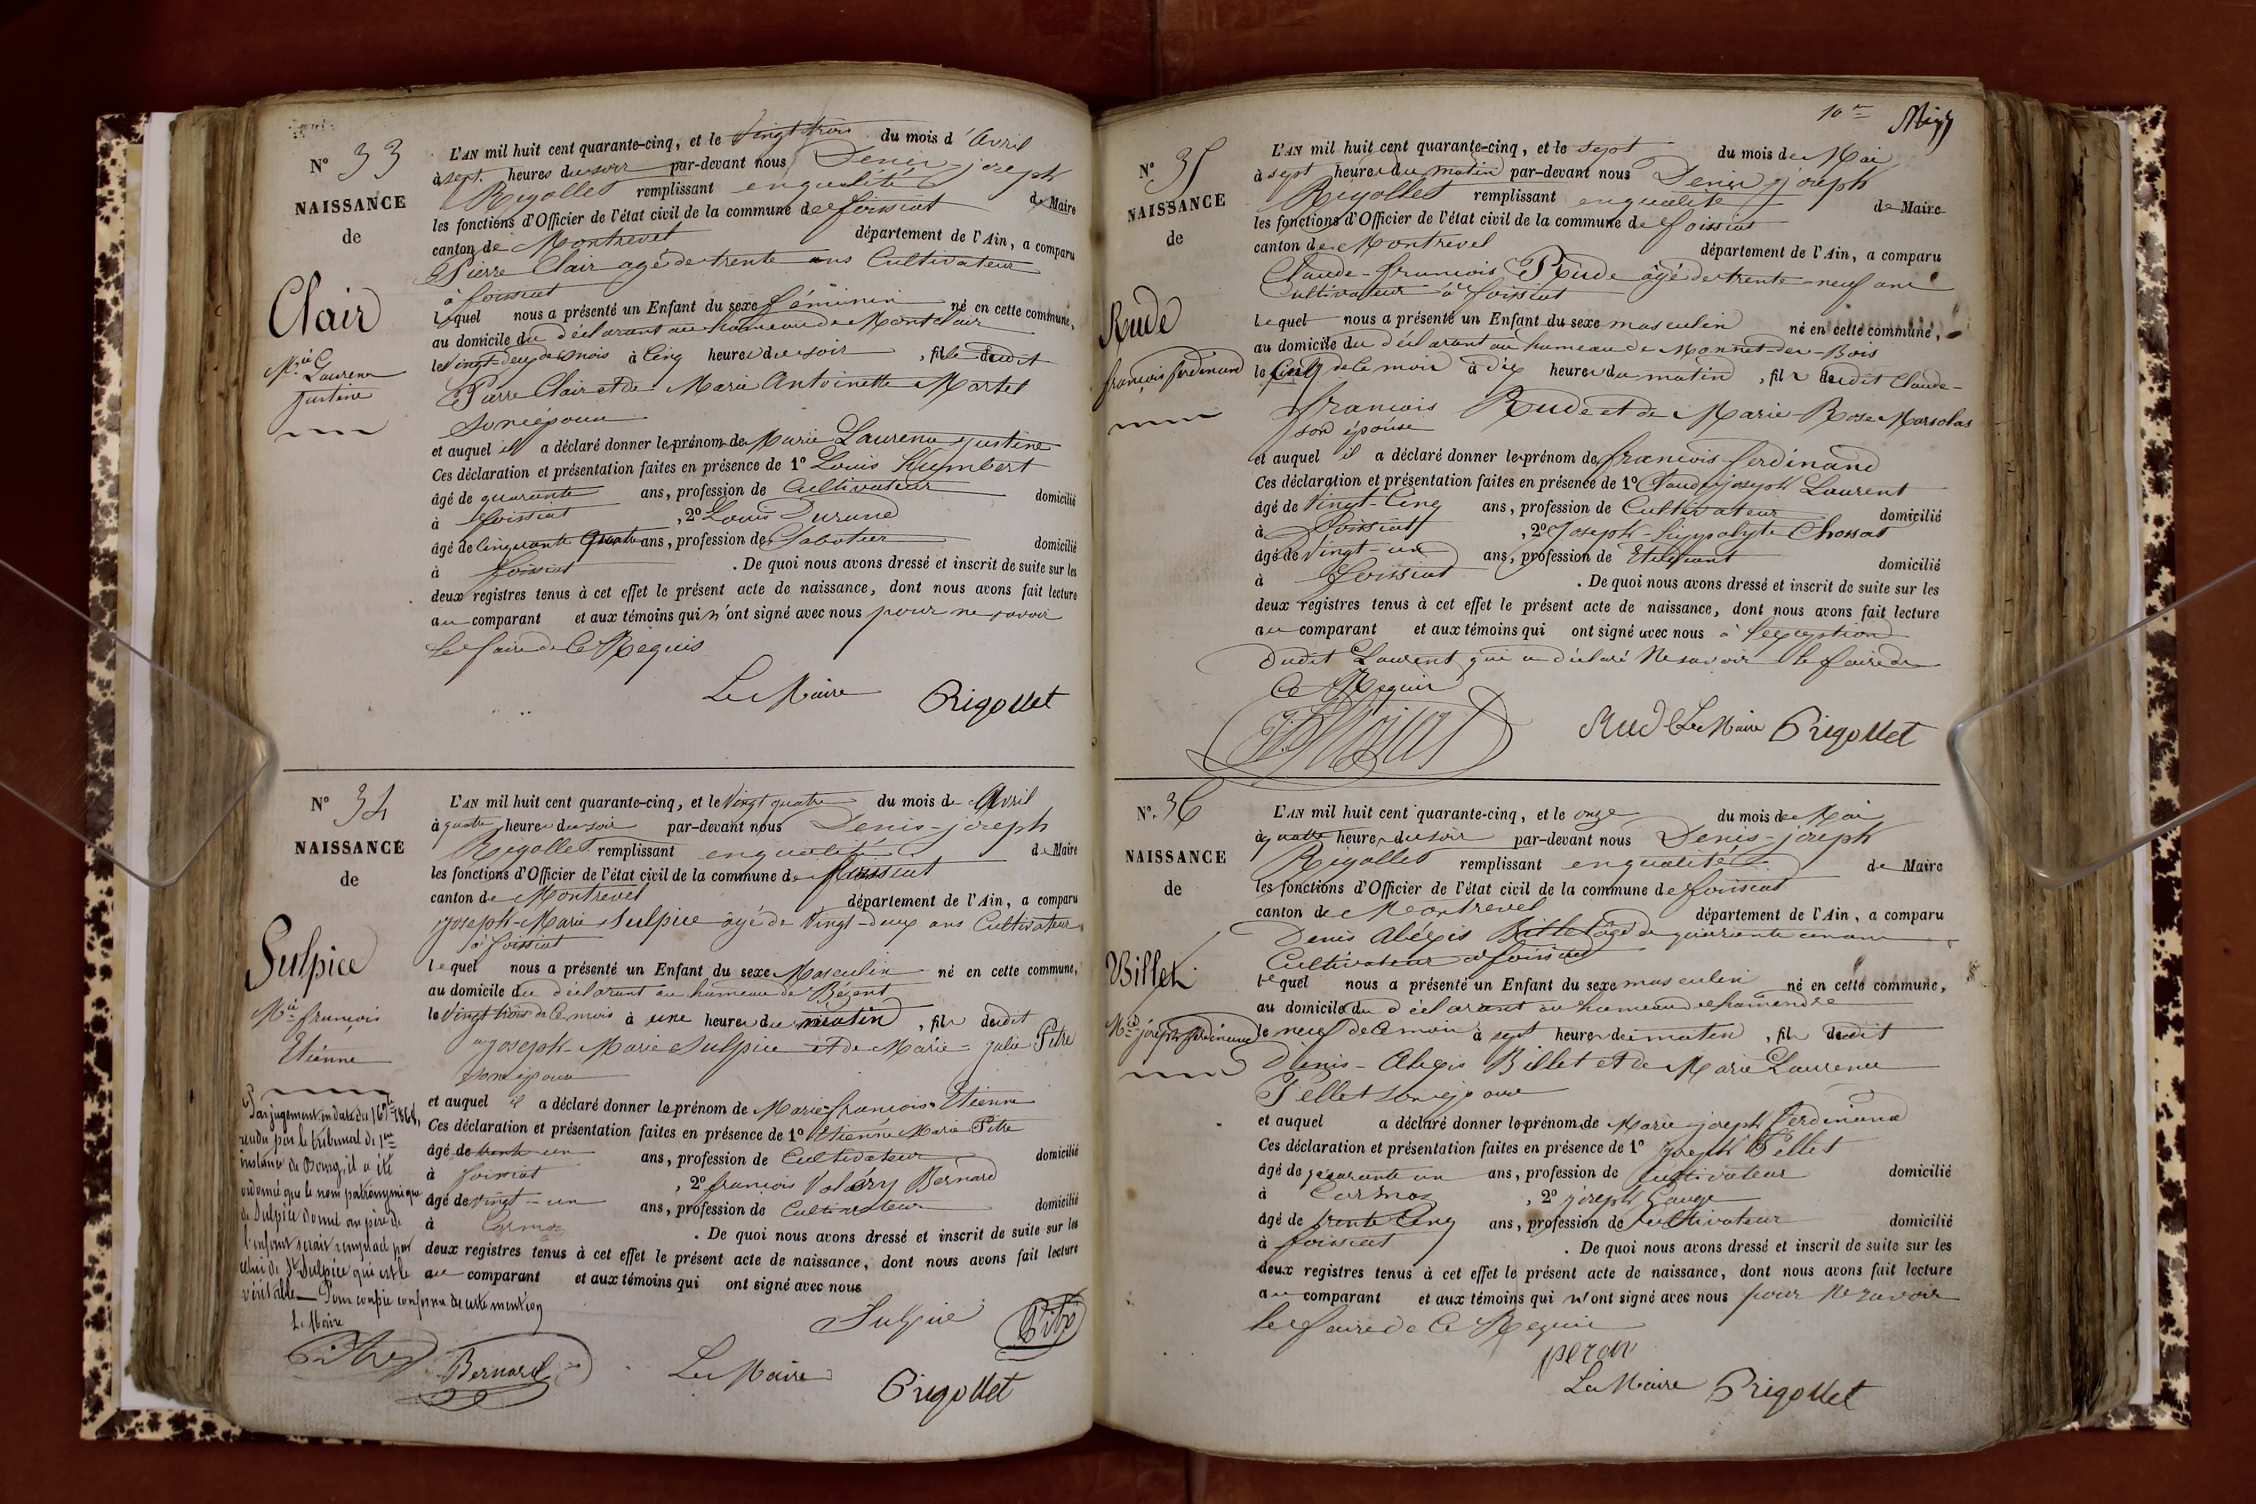 N° 33
NAISSANCE
de
Clair
Mie Laurence
Justine
L'AN mil huit cent quarante-cinq, et le vingt trois du mois d'Avril
à sept heures du soir par-devant nous Denis-joseph
Rigollet remplissant en qualité de Maire
les fonctions d'Officier de l'état civil de la commune de foissiat
canton de Montrevel département de l'Ain, a comparu
Pierre Clair agé de trente ans Cultivateur
à foissiat
lequel nous a présenté un Enfant du sexe féminin né en cette commune,
au domicile du déclarant au hameau de Montclair
le vingt-deux de ce mois à cinq heures du soir, fille dudit
Pierre Clair et de Marie Antoinette Martel
son épouse
et auquel il a déclaré donner le prénom de Marie Laurence justine
Ces déclaration et présentation faites en présence de 1° Louis Humbert
âgé de quarante ans, profession de Cultivateur domicilié
à foissiat, 2° Louis Durand
âgé de cinquante quatre ans, profession de Sabotier domicilié
à foissiat. De quoi nous avons dressé et inscrit de suite sur les
deux registres tenus à cet effet le présent acte de naissance, dont nous avons fait lecture
au comparant et aux témoins qui n'ont signé avec nous pour ne savoir
le faire de ce Requis
Le Maire Rigollet
N° 34
NAISSANCE
de
Sulpice
Mie françois
Etiénne
L'AN mil huit cent quarante-cinq, et le vingt quatre du mois de Avril
à quatre heures du soir par-devant nous Denis-joseph
Rigollet remplissant en qualité de Maire
les fonctions d'Officier de l'état civil de la commune de foissiat
canton de Montrevel département de l'Ain, a comparu
joseph-Marie Sulpice âgé de vingt-deux ans Cultivateur
à foissiat
lequel nous a présenté un Enfant du sexe Masculin né en cette commune,
au domicile du déclarant au hameau de Bézent
le vingt trois de ce mois à une heure du matin, fils dudit
joseph-Marie Sulpice et de Marie-julie Pitre
son épouse
et auquel il a déclaré donner le prénom de Marie-françois-Etienne
Ces déclaration et présentation faites en présence de 1° Etienne Marie Pitre
âgé de trente un ans, profession de Cultivateur domicilié
à foissiat, 2° françois Valéry Bernard
âgé de vingt-un ans, profession de Cultivateur domicilié
à Cormoz. De quoi nous avons dressé et inscrit de suite sur les
deux registres tenus à cet effet le présent acte de naissance, dont nous avons fait lecture
au comparant et aux témoins qui ont signé avec nous
Par jugement en date du 16 1868,
rendu par le tribunal de 1ère
instance de Bourg, il a été
ordonné que le nom patronymique
de Sulpice donné au père de
l'enfant serait remplacé par
celui de St Sulpice qui est le
véritable. Pour copie conforme de cette mention
Le Maire
Sulpice Pitre
Pitre Bernard Le Maire Rigollet
10me
N° 35
NAISSANCE
de
Rude
françois ferdinand
L'AN mil huit cent quarante-cinq, et le sept du mois de Mai
à sept heures du matin par-devant nous Denis joseph
Rigollet remplissant en qualité de Maire
les fonctions d'Officier de l'état civil de la commune de foissiat
canton de Montrevel département de l'Ain, a comparu
Claude-françois Rude âgé de trente neuf ans
Cultivateur à foissiat
lequel nous a présenté un Enfant du sexe masculin né en cette commune,
au domicile du déclarant au hameau de Monnet-des-Bois
le cinq de ce mois à dix heures du matin, fils dudit Claude-
françois Rude et de Marie-Rose Marsolas
son épouse
et auquel il a déclaré donner le prénom de françois ferdinand
Ces déclaration et présentation faites en présence de 1° Claude joseph Laurent
âgé de vingt-cinq ans, profession de Cultivateur domicilié
à foissiat, 2° Joseph-hyppolyte Chossat
âgé de vingt-un ans, profession de Etudiant domicilié
à foissiat. De quoi nous avons dressé et inscrit de suite sur les
deux registres tenus à cet effet le présent acte de naissance, dont nous avons fait lecture
au comparant et aux témoins qui ont signé avec nous à l'exception
dudit Laurent qui a déclaré Ne savoir le faire de
ce Requis
Rude Le Maire Rigollet
N° 36
NAISSANCE
de
Billet
Mie joseph ferdinand
L'AN mil huit cent quarante-cinq, et le onze du mois de Mai
à quatre heures du soir par-devant nous Denis-joseph
Rigollet remplissant en qualité de Maire
les fonctions d'Officier de l'état civil de la commune de foissiat
canton de Montrevel département de l'Ain, a comparu
Denis Aléxis Billet âgé de quarante un ans
Cultivateur à foissiat
lequel nous a présenté un Enfant du sexe masculin né en cette commune,
au domicile du déclarant au hameau
le neuf de ce mois à sept heures du matin, fils dudit
Denis-Alexis Billet et de Marie Laurence
Pellet son épouse
et auquel a déclaré donner le prénom de Marie-joseph Ferdinand
Ces déclaration et présentation faites en présence de 1° joseph Pellet
âgé de quarante un ans, profession de Cultivateur domicilié
à Cormoz, 2° joseph Gauge
âgé de trente Cinq ans, profession de Cultivateur domicilié
à foissiat. De quoi nous avons dressé et inscrit de suite sur les
deux registres tenus à cet effet le présent acte de naissance, dont nous avons fait lecture
au comparant et aux témoins qui n'ont signé avec nous pour Ne savoir
le faire de ce Requis
Le Maire Rigollet